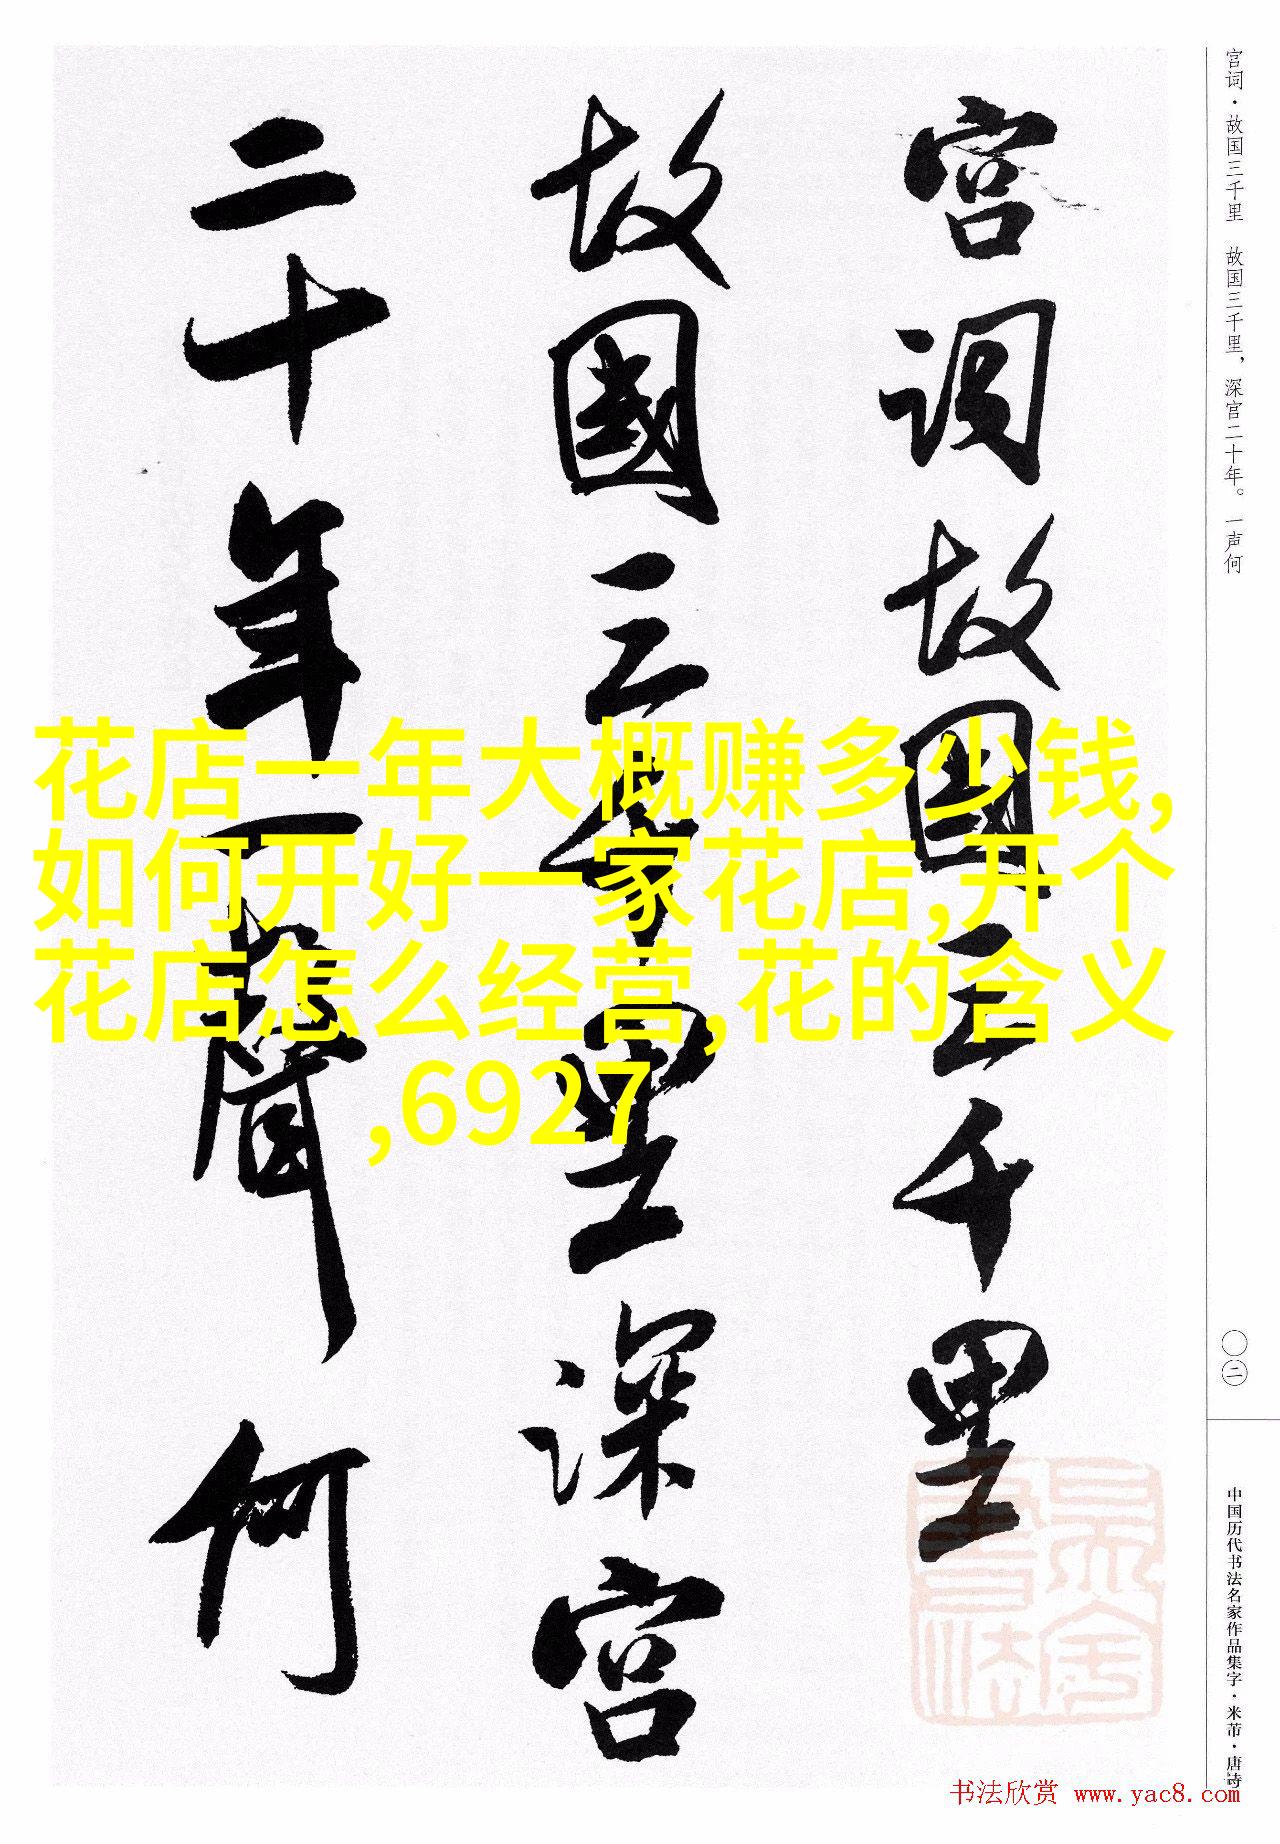 宫词·故国三千里　故国三千里，深宫二十年。一声何
宫词故國三千里
故國三千里深宫
二十年一聲何
花店一年大概赚多少钱,
如何开好一家花店,开个
花店怎么经营,花的含义
,6927
〇二
中国历代书法名家作品集字·米芾·唐诗
书法欣赏 www.yac8.com